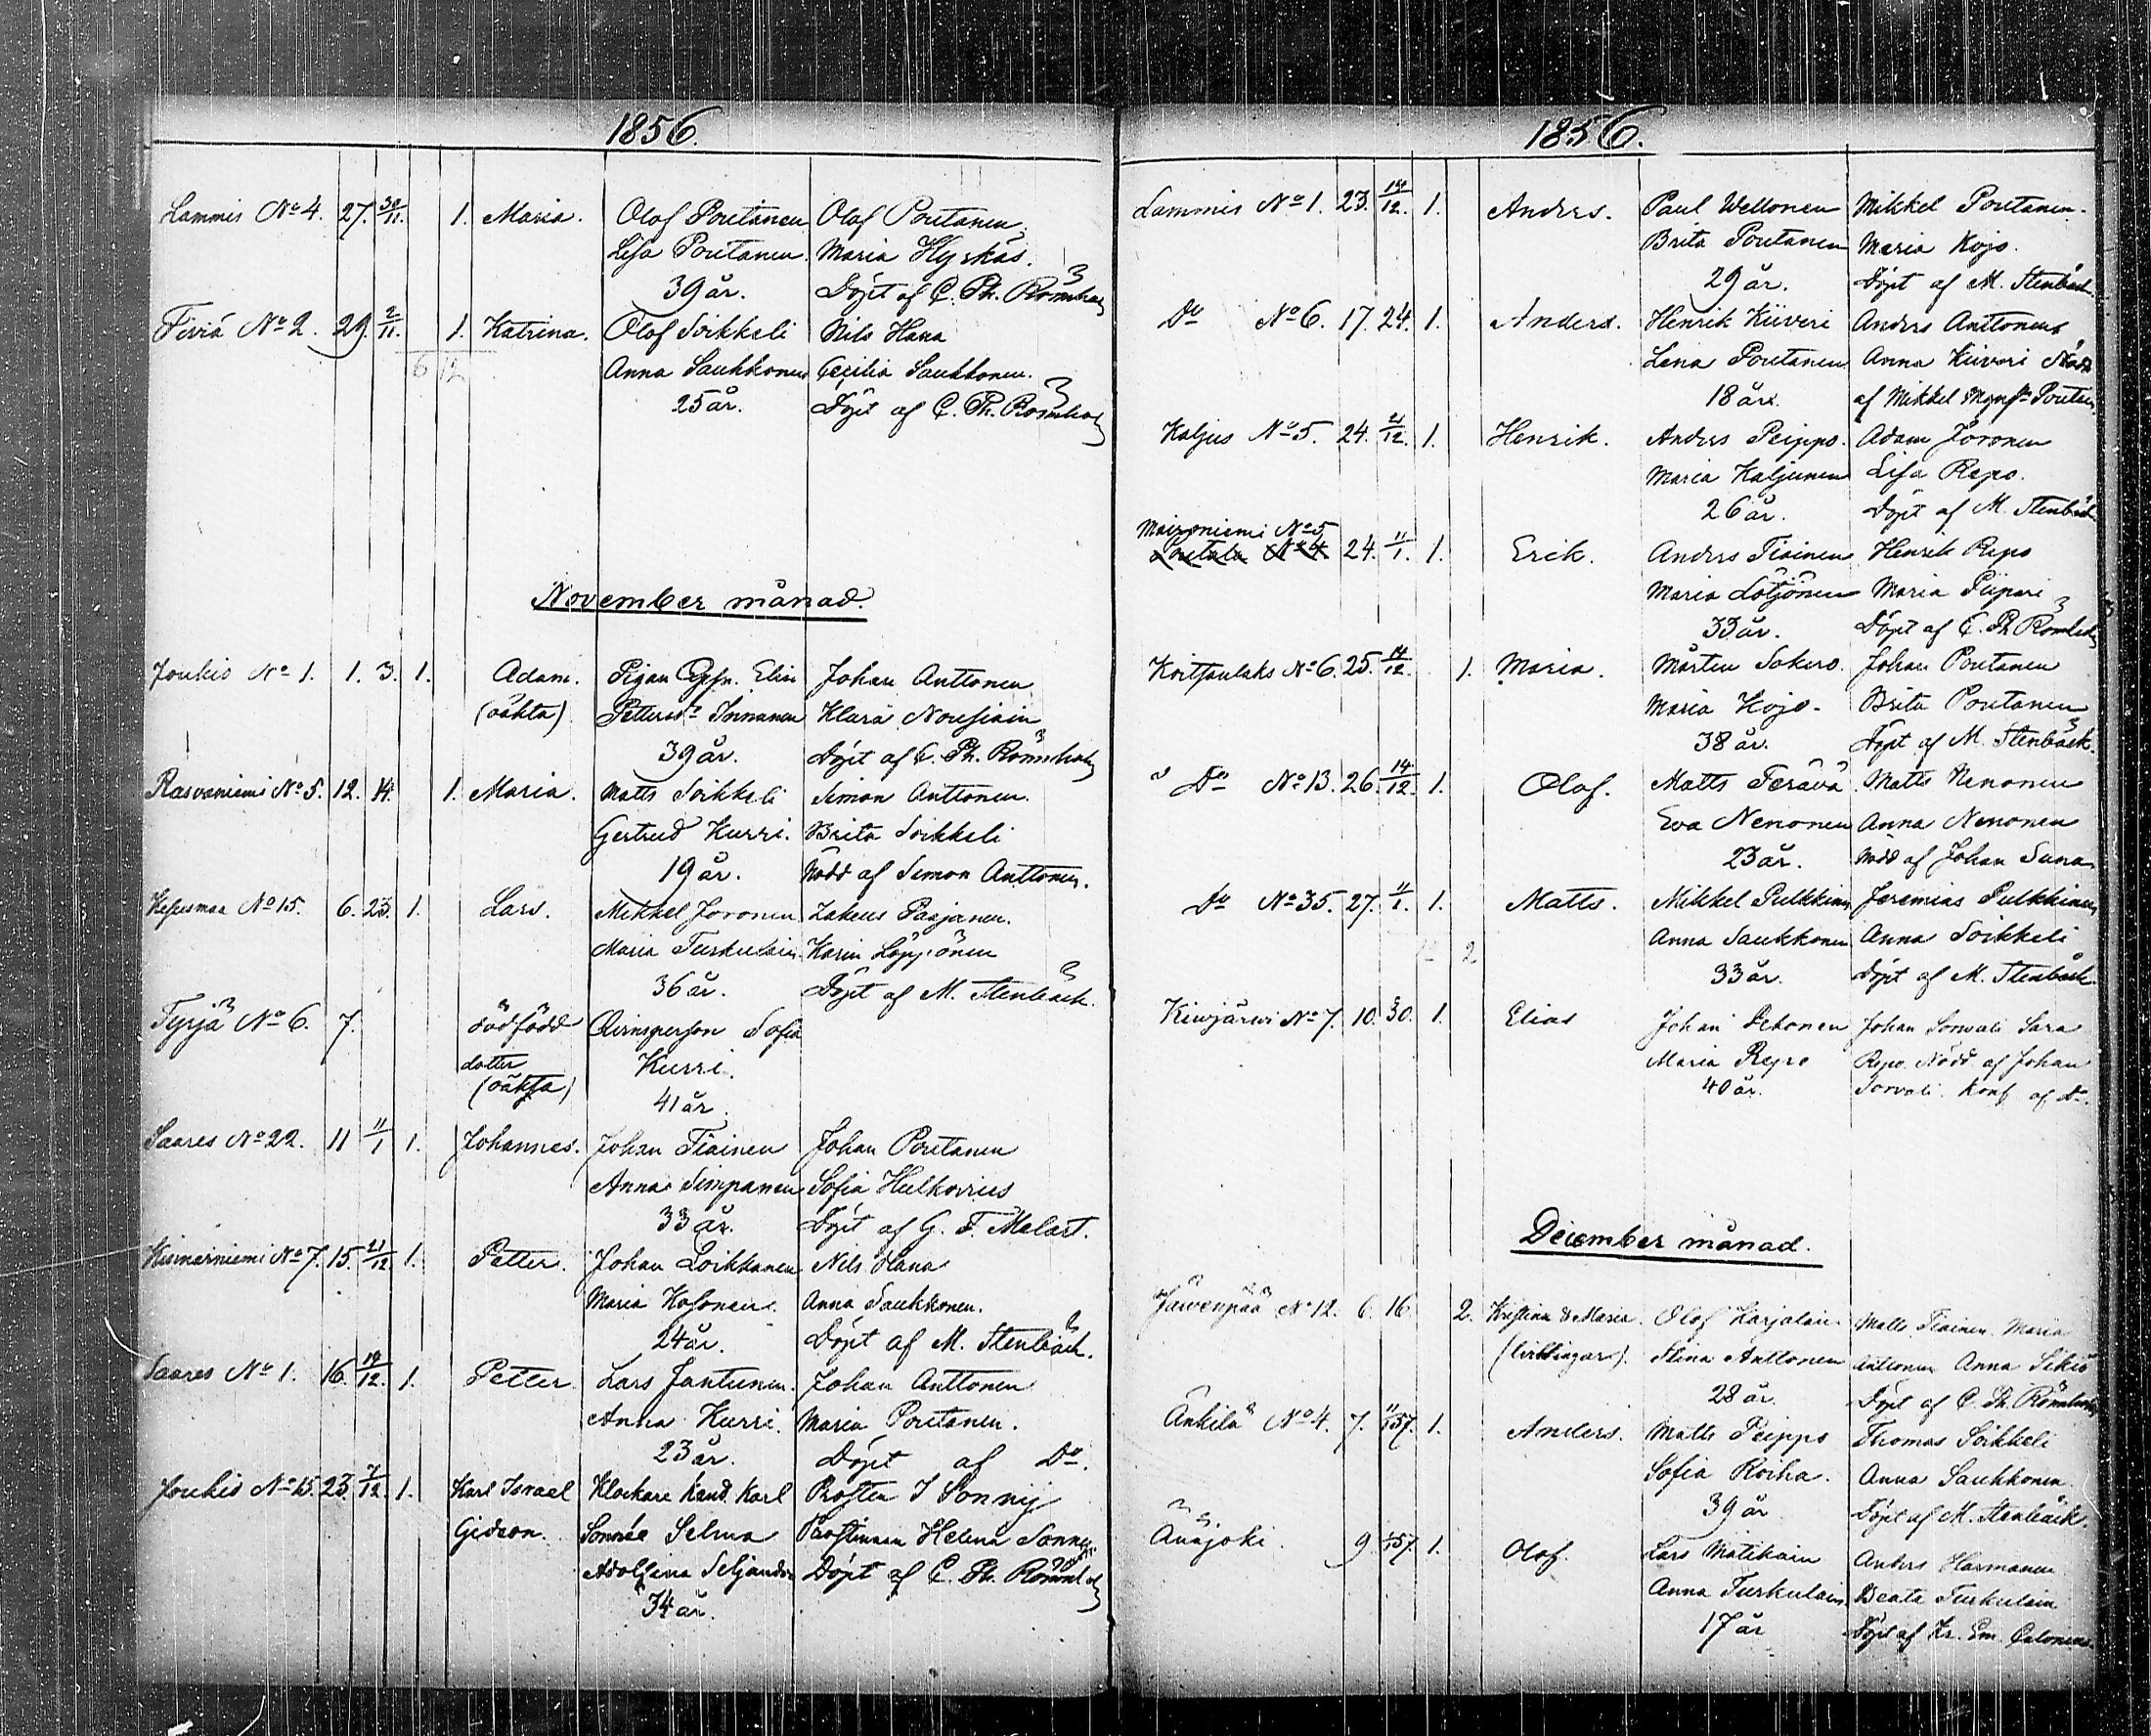 1856.
Lammis No 4. 27. 30/11. 1. Maria. Olof Poutanen Olof Poutanen
Lisa Poutanen. Maria Hyrkäs.
39 år. Döpt af C. Th.
No 2. 29. 2/11. 1. Katrina. Olof Soikkeli Nils Hana
6 12
Anna Saukkonen Cecilia Saukkonen.
25 år. Döpt af C. Th.
November månad.
Joukio No 1. 1. 3. 1. Adam. Pigan Elin Johan Anttonen
(oäkta) Innanen Klara
39 år. Döpt af C. Th.
Rasvaniemi No 5. 12. 14. 1. Maria. Matts Soikkeli Simon Anttonen.
Gertrud Kurri. Brita Soikkeli
19 år. Nödd af Simon Anttonen.
No 15. 6. 23. 1. Lars. Mikkel Joronen Zakeus Paajanen.
Maria Turkulain. Karin Löppönen
36 år. Döpt af M. Stenbäck.
Tyrjä No 6. 7. dödfödd Sofia
dotter Kurri.
(oäkta) 41 år.
Saares No 22. 11 11/1 1. Johannes. Johan Tiainen Johan Poutanen
Anna Simpanen Sofia Hulkovius
33 år. Döpt af G. F. Melart.
No 7. 15. 21/12 1. Petter. Johan Loikkanen Nils Hana
Maria Kosonen. Anna Saukkonen.
24 år. Döpt af M. Stenbäck.
Saares No 1. 16. 14/12. 1. Petter. Lars Jantunen. Johan Anttonen
Anna Kurri. Maria Poutanen.
23 år. Döpt af Do.
Joukio No 15. 23. 7/12. 1. Karl Israel Klockare Kand. Karl Prosten I
Gideon. Selma Prostinnan Helena
Adolfina Döpt af C. Th.
34 år.
1856.
Lammis No 1. 23. 14/12. 1. Anders. Paul Wellonen Mikkel Poutanen.
Brita Poutanen Maria Kojo.
29 år. Döpt af M. Stenbäck.
Do No 6. 17. 24. 1. Anders. Henrik Kiiveri Anders Anttonen
Lena Poutanen Anna Kiiveri Nödd
18 år. af Mikkel
Kaljus No 5. 24. 21/12. 1. Henrik. Anders Peippo. Adam Joronen
Maria Kaljunen Lisa Repo.
26 år. Döpt af M. Stenbäck
No 5
Poutala No 4 24. 11/1. 1. Erik. Anders Tiainen Henrik Repo
Maria Lötjönen Maria Piipari
33 år. Döpt af C. Th
Koitsanlaks No 6. 25. 14/12. 1. Maria. Mårten Sokuro. Johan Poutanen
Maria Kojo. Brita Poutanen
38 år. Döpt af M. Stenbäck.
Do No 13. 26. 14/12. 1. Olof. Matts Terävä. Matts Nenonen
Eva Nenonen Anna Nenonen
23 år. Nödd af Johan Suna
Do No 35. 27. 11/1. 1. Matts. Mikkel Pulkkinen Jeremias Pulkkinen
2
Anna Saukkonen Anna Soikkeli
33 år. Döpt af M. Stenbäck
Kivijärvi No 7. 10. 30. 1. Elias Johan Johan Sorvali Sara
Maria Repo Repo. Nödd af Johan
40 år. Sorvali. Konf. af Do.
December månad.
Järvenpää No 12. 6. 16. 2. Kristina & Maria. Olof Karjalain Matts Tiainen Maria
(tvillingar). Stina Anttonen Anttonen Anna
28 år. Döpt af C. Th.
Änkilä No 4. 7. 11/1 57. 1. Anders. Matts Peippo Thomas Soikkeli
Sofia Roiha. Anna Saukkonen
39 år Döpt af M. Stenbäck.
Änäjoki. 9. 57. 1. Olof. Lars Matikain Anders Harmanen
Anna Turkulain Beata Turkulain
17 år Döpt af Kr. Em.